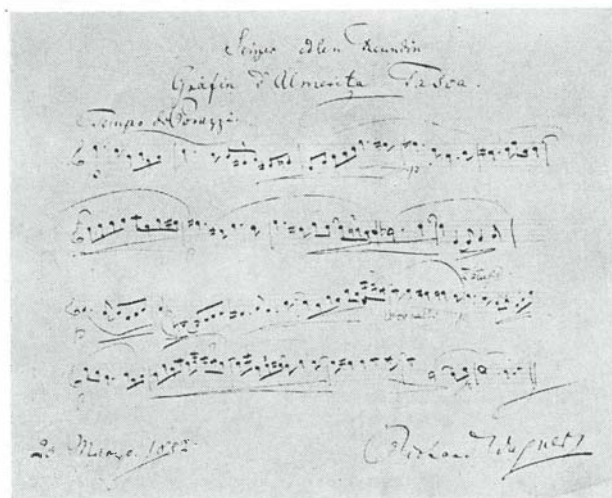 Seiner edlen Freundin
Gräfin d'Almerita Tasca.
Tempo di Porazzi.
20 Marzo. 1882.
Richard Wagner